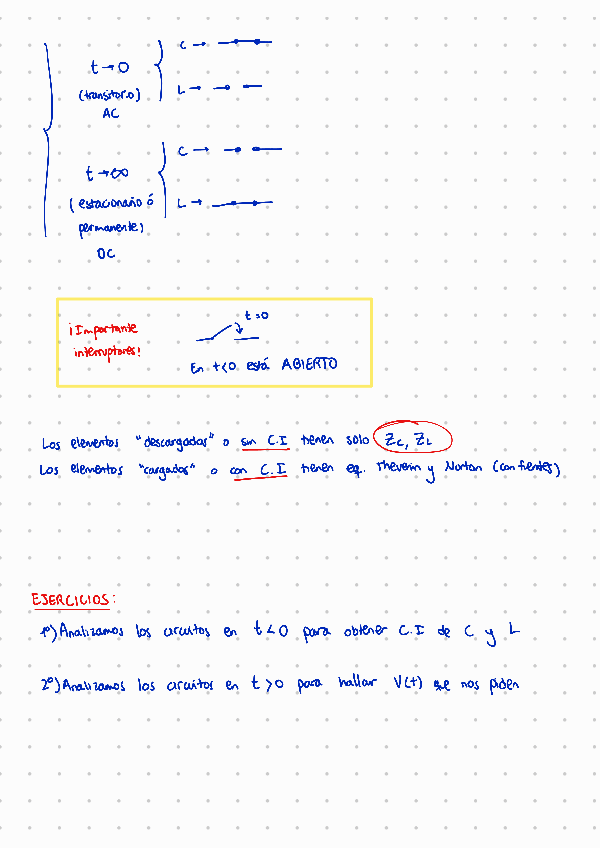 C →
t → 0
(transitorio)
L →
AC
C →
t → ∞
(estacionario ó
L →
permanente)
DC
t=0
¡Importante
interruptores!
En t<0 está ABIERTO
Los elementos "descargados" o sin C.I tienen solo Zc, ZL
Los elementos "cargados" o con C.I tienen eq. Thevenin y Norton (con fuentes)
EJERCICIOS:
1º) Analizamos los circuitos en t<0 para obtener C.I de C y L
2º) Analizamos los circuitos en t>0 para hallar V(t) que nos piden